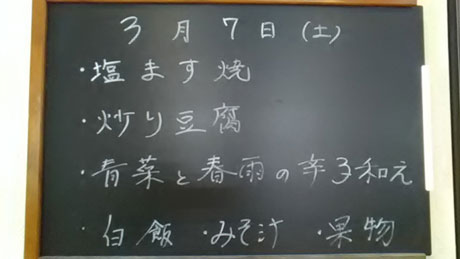 3月7日(土)
・塩ます焼
・炒り豆腐
・青菜と春雨の辛子和え
白飯 ・みそ汁 ・果物